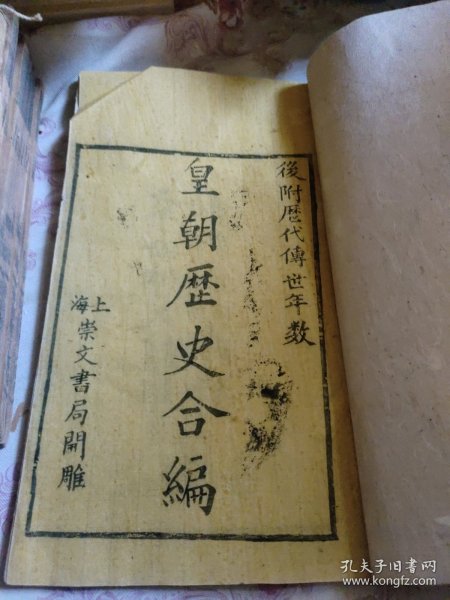 後附歷代傳世年數
皇朝歷史合編
上海崇文書局開雕
孔夫子旧书网
www.kongfz.com